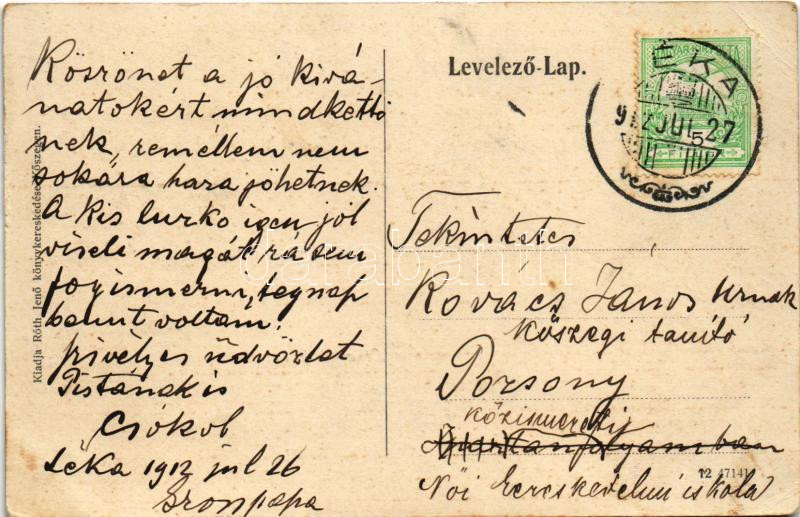 Köszönet a jó kivá-
natokért mindkettő
nek, reméllem nem
sokára haza jöhetnek.
A kis lurko igen jól
viseli magát, rá sem
fog ismerni, tegnap
bent voltam!
szivélyes üdvözlet
Pistának is
Csókol
Léka 1912 jul 26
Kiadja Róth Jenő könyvkereskedése Kőszegen.
Levelező-Lap.
LÉKA
912 JUL 27
5
Tekintetes
Kovács János urnak
kőszegi tanító
Pozsony
közismereti
tanfolyamban
Női kereskedelmi iskola
12 47141
darabanth